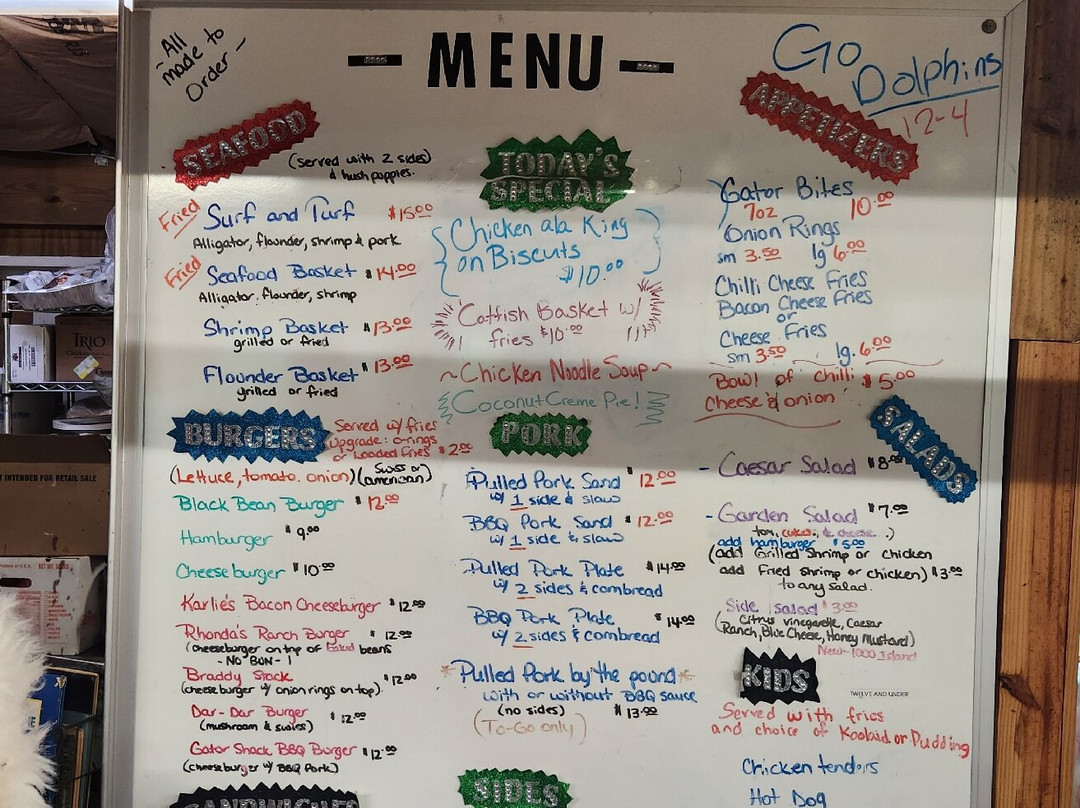 ~All
made to
Order~
MENU
Go
Dolphins
12-4
SEAFOOD
(served with 2 sides)
& hushpuppies.
Fried Surf and Turf $15.00
Alligator, flounder, shrimp & pork
Fried Seafood Basket $14.00
Alligator, flounder, shrimp
Shrimp Basket $13.00
grilled or fried
Flounder Basket $13.00
grilled or fried
BURGERS
Served w/ fries
upgrade: o-rings
or Loaded fries $2.00
(Lettuce, tomato. onion) (Swiss or american)
Black Bean Burger $12.00
Hamburger $9.00
Cheeseburger $10.00
Karlie's Bacon Cheeseburger $12.00
Rhonda's Ranch Burger $12.00
(cheeseburger on top of baked beans
- NO BUN -)
Braddy Stack $12.00
(cheeseburger w/ onion rings on top)
Dar-Dar Burger $12.00
(mushroom & swiss)
Gator Shack BBQ Burger $12.00
(cheeseburger w/ BBQ Pork)
SANDWICHES
TODAY'S
SPECIAL
Chicken ala King
on Biscuts
$10.00
Catfish Basket w/
fries $10.00
~Chicken Noodle Soup~
Coconut Creme Pie!
PORK
Pulled Pork Sand $12.00
w/ 1 side & slaw
BBQ Pork Sand $12.00
w/ 1 side & slaw
Pulled Pork Plate $14.00
w/ 2 sides & cornbread
BBQ Pork Plate $14.00
w/ 2 sides & cornbread
*Pulled Pork by the pound*
with or without BBQ sauce
(no sides) $13.00
(To-Go only)
SIDES
APPETIZERS
Gator Bites
7oz 10.00
Onion Rings
sm 3.50 lg 6.00
Chilli Cheese Fries
Bacon Cheese Fries
or
Cheese Fries
sm 3.50 lg. 6.00
Bowl of chilli $5.00
Cheese & onion
SALADS
- Caesar Salad $8.00
- Garden Salad $7.00
tom, cukes, & cheese.)
add hamburger $5.00
(add Grilled Shrimp or chicken
add Fried Shrimp or chicken) $3.00
to any salad.
Side salad $3.00
(Citrus vinegarette, Caesar
Ranch, Blue Cheese, Honey Mustard)
New-1000 Island
KIDS
TWELVE AND UNDER
Served with fries
and choice of Koolaid or Pudding
Chicken tenders
Hot Dog
TRIO
T INTENDED FOR RETAIL SALE